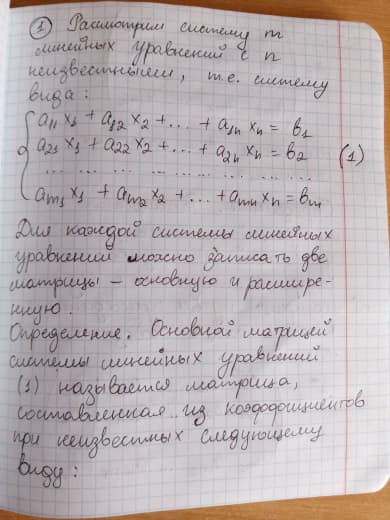 ① Рассмотрим систему m
линейных уравнений с n
неизвестными, т.е. систему
вида:
a11 x1 + a12 x2 + ... + a1n xn = b1
a21 x1 + a22 x2 + ... + a2n xn = b2 (1)
... ... ... ... ... ... ... ... ...
am1 x1 + am2 x2 + ... + amn xn = bm
Для каждой системы линейных
уравнений можно записать две
матрицы – основную и расшире-
нную.
Определение. Основной матрицей
системы линейных уравнений
(1) называется матрица,
составленная из коэффициентов
при неизвестных следующему
виду: